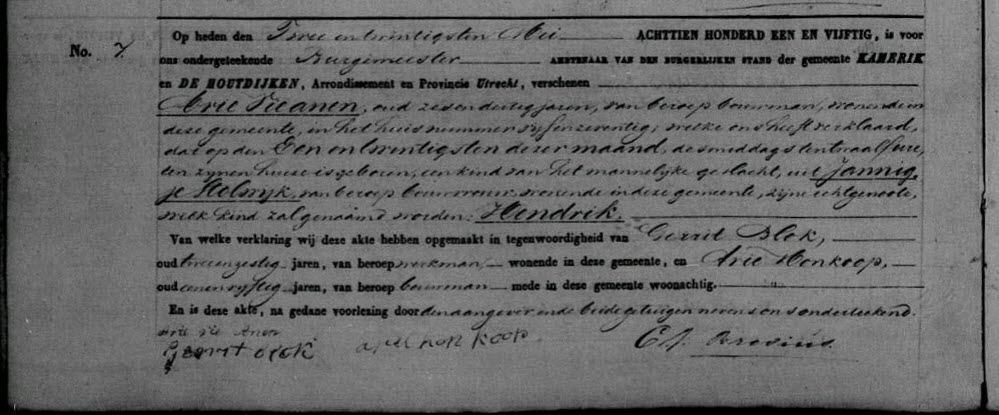 No. 7. Op heden den Twee en twintigsten Mei ACHTTIEN HONDERD EEN EN VIJFTIG, is voor
ons ondergeteekende Burgemeester AMBTENAAR VAN DEN BURGERLIJKEN STAND der gemeente KAMERIK
en DE HOUTDIJKEN, Arrondissement en Provincie Utrecht, verschenen
Arie Vieanen, oud zesendertig jaren, van beroep bouwman, wonende in
deze gemeente, in het huis nummer vyfenzeventig; welke ons heeft verklaard,
dat op den Een entwintigsten dezer maand, des middags ten twaalf ure,
ten zynen huize is geboren, een kind van het mannelyke geslacht, uit Jannig
je Stolwyk, van beroep bouwvrouw, wonende in deze gemeente, zyne echtgenoote,
welk kind zal genaamd worden: Hendrik.
Van welke verklaring wij deze akte hebben opgemaakt in tegenwoordigheid van Gerrit Blok,
oud tweeenzestig jaren, van beroep werkman, wonende in deze gemeente, en Arie Honkoop,
oud eenenvyftig jaren, van beroep bouwman mede in deze gemeente woonachtig.
En is deze akte, na gedane voorlezing door den aangever en de beide getuigen nevens ons onderteekend.
arie vie anen
Gerrit blok arie hon koop C. J. Brosius